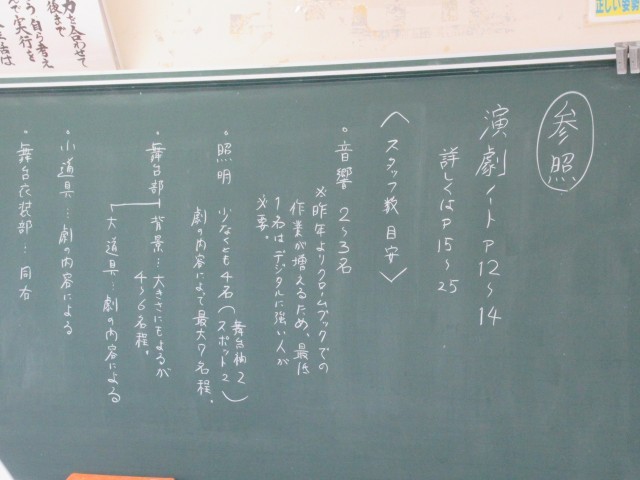 参照
演劇ノート P12～14
詳しくは P15～25
〈スタッフ数 目安〉
・音響 2～3名
※昨年よりクロムブックでの
作業が増えるため、最低
1名はデジタルに強い人が
必要。
・照明 少なくとも4名(舞台袖2
スポット2)
劇の内容によって最大7名程。
・舞台部 背景…大きさにもよるが
4～6名程。
大道具…劇の内容による
・小道具…劇の内容による
・舞台衣装部…同右
力を合わせて
後まで
自ら考え
実行を
正しい姿勢